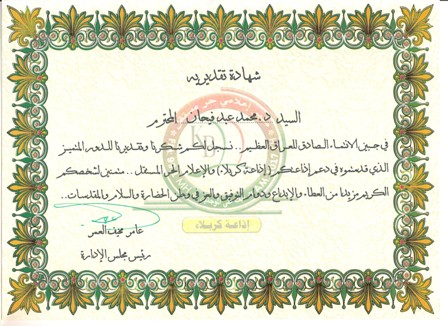 شهادة تقديرية
السيد د. محمد عبد فيحان المحترم
في حسن الانتماء الصادق للعراق العظيم .. نسجل لكم شكرنا وتقديرنا للدور المتميز
الذي قدمتموه في دعم إذاعتكم (إذاعة كربلاء) والإعلام الحر المستقل .. متمنين لشخصكم
الكريم مزيدا من العطاء والإبداع ودوام التوفيق والعز في وطن الحضارة والسلام والمقدسات ..
إذاعة كربلاء
عامر
العمر
رئيس مجلس الإدارة